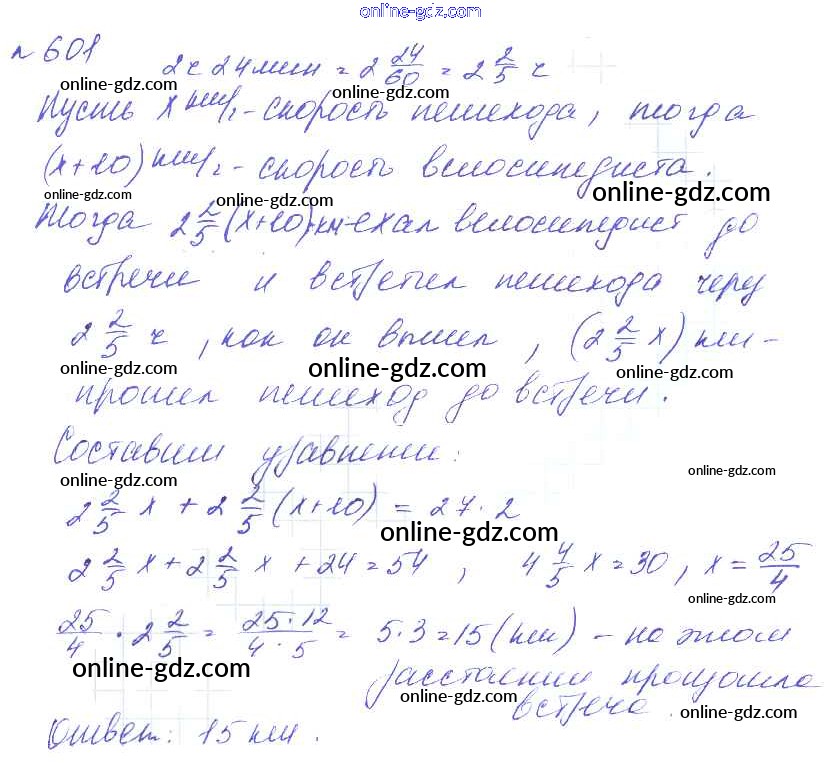 online-gdz.com
№ 601
2 ч 24 мин = 2 24/60 = 2 2/5 ч
online-gdz.com online-gdz.com
Пусть x км/ч - скорость пешехода, тогда
(x+10) км/ч - скорость велосипедиста.
online-gdz.com online-gdz.com online-gdz.com
Тогда 2 2/5 (x+10) км - ехал велосипедист до
встречи и встретил пешехода через
2 2/5 ч, как он вышел, (2 2/5 x) км -
online-gdz.com online-gdz.com online-gdz.com
прошел пешеход до встречи.
Составим уравнение:
online-gdz.com online-gdz.com
2 2/5 x + 2 2/5 (x+10) = 27·2
online-gdz.com
2 2/5 x + 2 2/5 x + 24 = 54, 4 4/5 x = 30, x = 25/4
online-gdz.com
25/4 · 2 2/5 = 25·12/4·5 = 5·3 = 15 (км) - на этом
online-gdz.com
расстоянии произошла
online-gdz.com
встреча.
online-gdz.com
Ответ: 15 км.